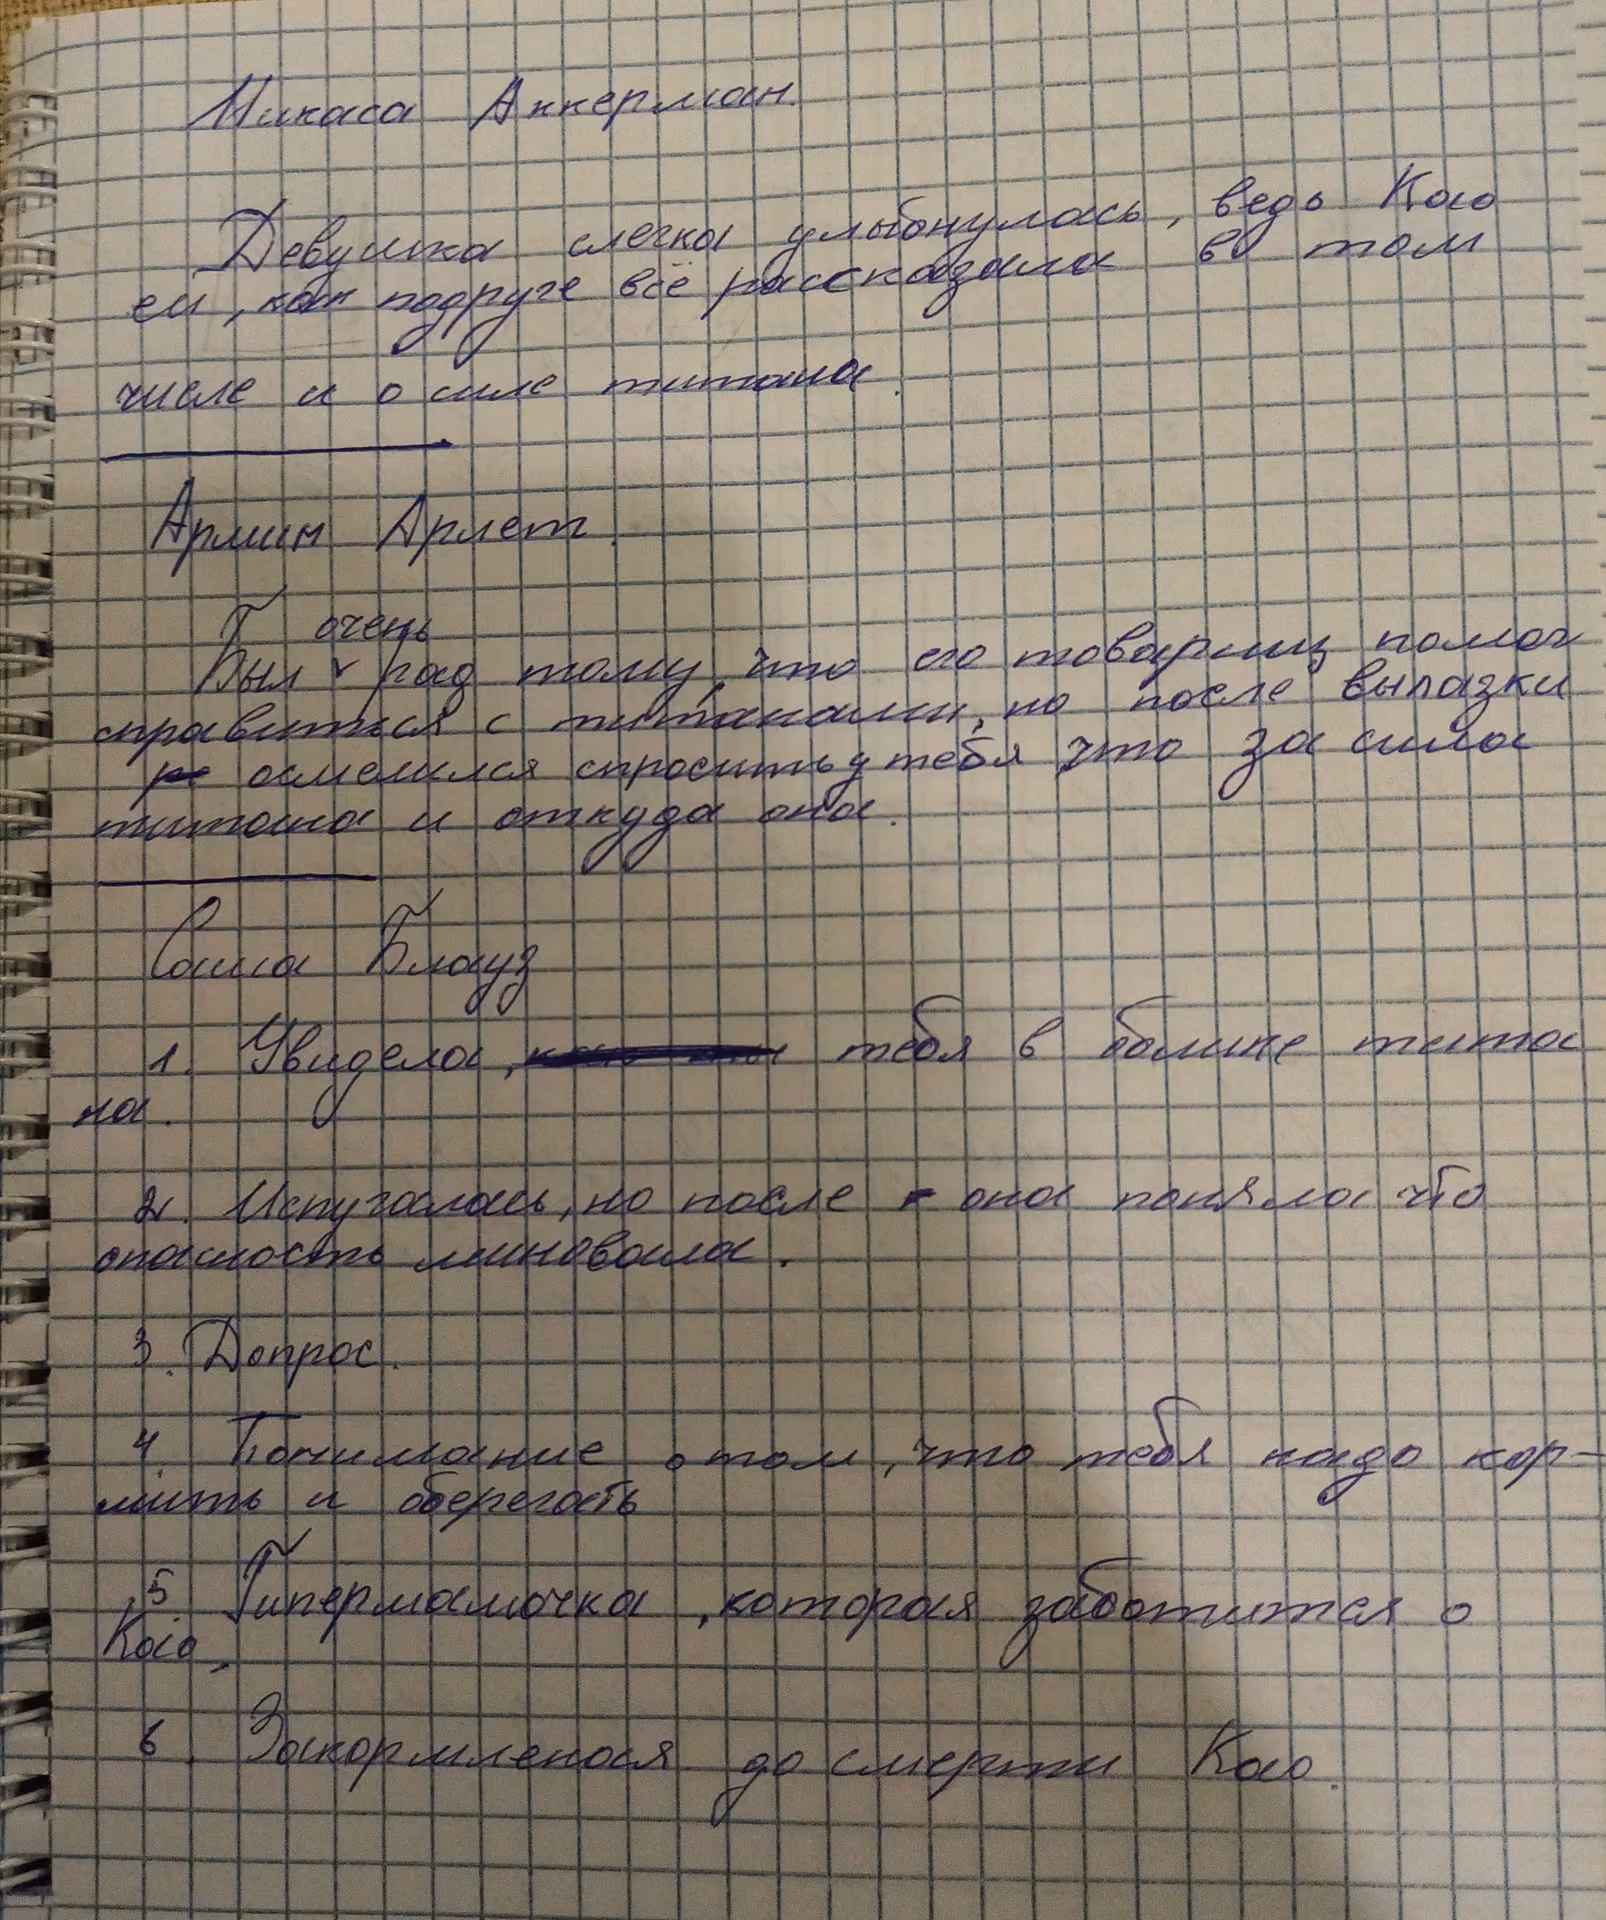 Микаса Аккерман.
Девушка слегка улыбнулась, ведь Као
ей, как подруге всё рассказала в том
числе и о силе титана.
Армин Арлет.
очень
Был рад тому, что его товарищ помог
справиться с титанами, но после вылазки
осмелился спросить у тебя что за сила
титана и откуда она.
Саша Блауз
1. Увидела, тебя в облике тита
на.
2. Испугалась, но после она поняла что
опасность миновала.
3. Допрос.
4. Понимание о том, что тебя надо кор-
мить и оберегать
5. Гипермамочка, которая заботится о
Као.
6. Закормленая до смерти Као.